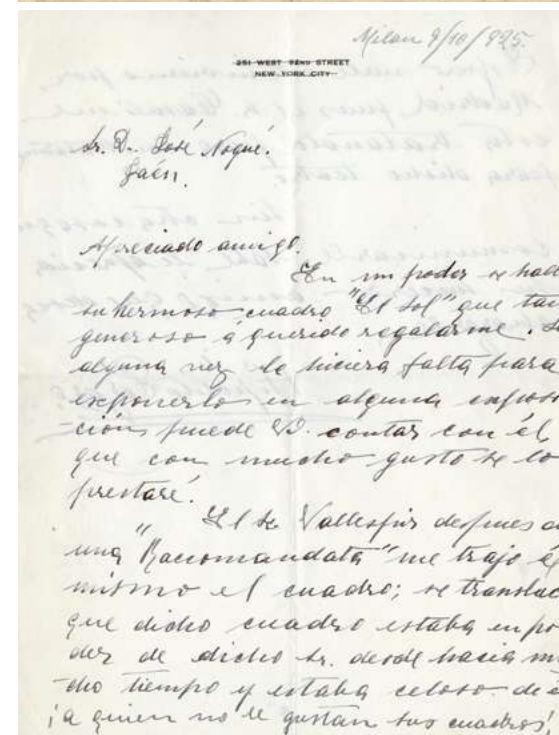 Milan 9/10/925.
251 WEST 92ND STREET
NEW YORK CITY
Sr. D. José Nogué.
Jaén.
Apreciado amigo.
En mi poder se hall
su hermoso cuadro "El Sol" que tan
generoso á querido regalarme. S
alguna vez le hiciera falta para
exponerlo en alguna exposi
-ción puede V. contar con él
que con mucho gusto se lo
prestaré.
El Sr Vallespir despues d
una "Raccomandata" me trajo é
mismo el cuadro; se transluc
que dicho cuadro estaba en po
der de dicho Sr. desde hacia mu
cho tiempo y estaba celoso de é
¡a quien no le gustan sus cuadros!